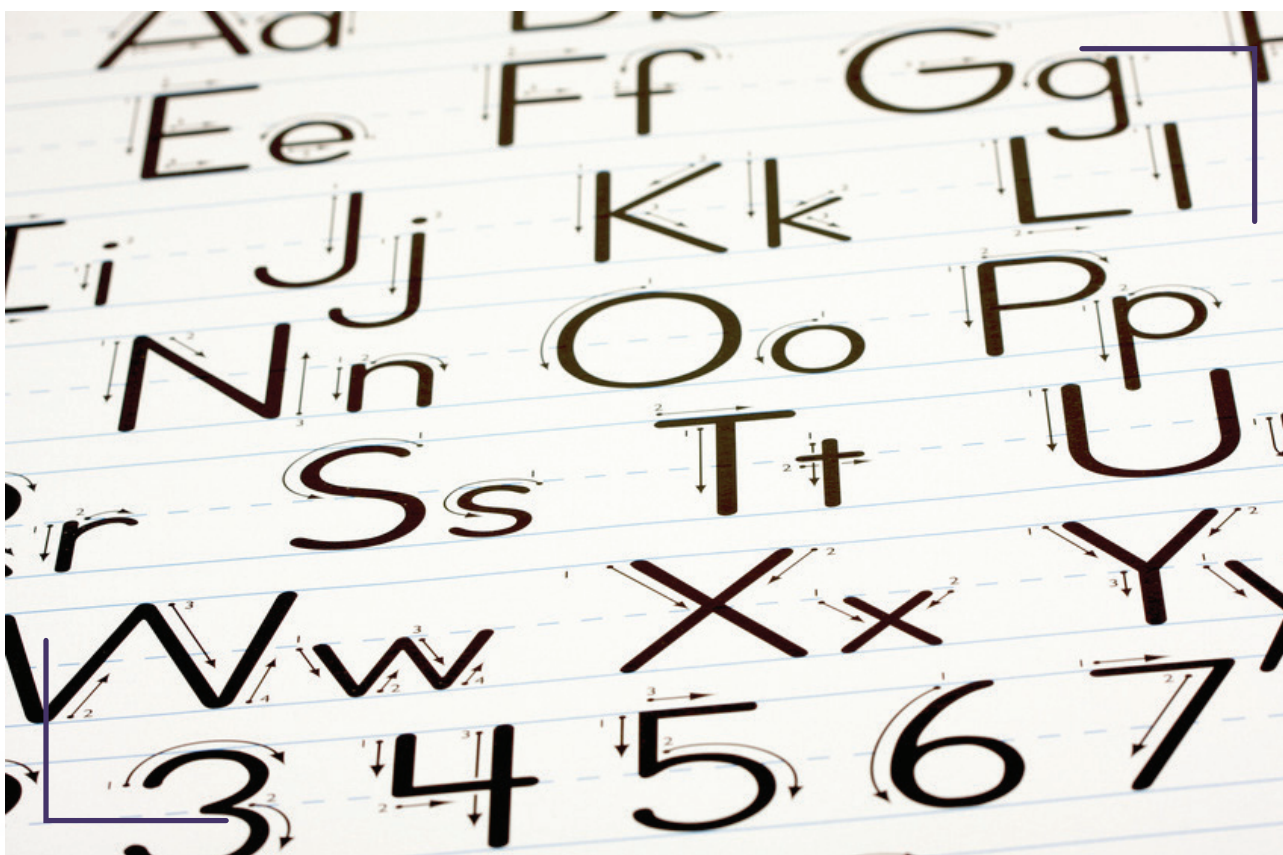 Aa
Ee Ff Gg
i Jj Kk Ll
Nn Oo Pp
r Ss Tt U
W w Xx Y
3 4 5 6 7